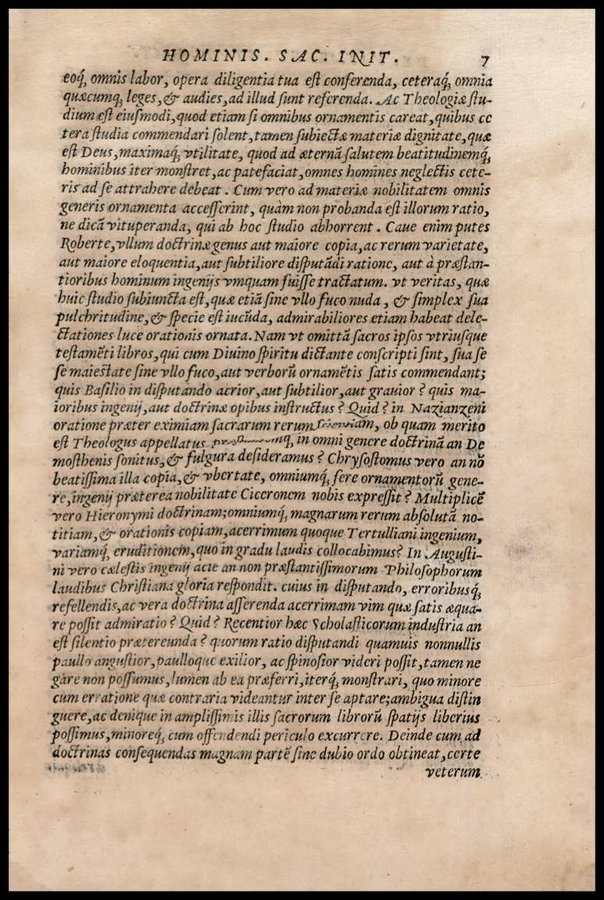 HOMINIS. SAC. INIT. 7
eoq́, omnis labor, opera diligentia tua est conferenda, ceteraq́, omnia
quæcumq́, leges, & audies, ad illud sunt referenda. Ac Theologiæ stu-
dium est eiusmodi, quod etiam si omnibus ornamentis careat, quibus ce
tera studia commendari solent, tamen subiectæ materiæ dignitate, quæ
est Deus, maximaq́, vtilitate, quod ad æternã salutem beatitudinemq́,
hominibus iter monstret, ac patefaciat, omnes homines neglectis cete-
ris ad se attrahere debeat. Cum vero ad materiæ nobilitatem omnis
generis ornamenta accesserint, quàm non probanda est illorum ratio,
ne dicã vituperanda, qui ab hoc studio abhorrent. Caue enim putes
Roberte, vllum doctrinæ genus aut maiore copia, ac rerum varietate,
aut maiore eloquentia, aut subtiliore disputãdi ratione, aut à præstan-
tioribus hominum ingenijs vmquam fuisse tractatum. vt veritas, quæ
huic studio subiuncta est, quæ etiã sine vllo fuco nuda, & simplex sua
pulchritudine, & specie est iucũda, admirabiliores etiam habeat dele-
ctationes luce orationis ornata. Nam vt omittã sacros ipsos vtriusque
testamẽti libros, qui cum Diuino spiritu dictante conscripti sint, sua se
se maiestate sine vllo fuco, aut verborũ ornamẽtis satis commendant;
quis Basilio in disputando acrior, aut subtilior, aut grauior? quis ma-
ioribus ingenij, aut doctrinæ opibus instructus? Quid? in Nazianzeni
oratione præter eximiam sacrarum rerum scientiam, ob quam merito
est Theologus appellatus in omni genere doctrinã an De
mosthenis sonitus, & fulgura desideramus? Chrysostomus vero an nõ
beatissima illa copia, & vbertate, omniumq́, fere ornamentorũ gene-
re, ingenij præterea nobilitate Ciceronem nobis expressit? Multiplicẽ
vero Hieronymi doctrinam; omniumq́, magnarum rerum absolutã no-
titiam, & orationis copiam, acerrimum quoque Tertulliani ingenium,
variamq́, eruditionem, quo in gradu laudis collocabimus? In Augusti-
ni vero cælestis ingenij acie an non præstantissimorum Philosophorum
laudibus Christiana gloria respondit. cuius in disputando, erroribusq́,
refellendis, ac vera doctrina asserenda acerrimam vim quæ satis æqua-
re possit admiratio? Quid? Recentior hæc Scholasticorum industria an
est silentio prætereunda? quorum ratio disputandi quamuis nonnullis
paullo angustior, paulloque exilior, ac spinosior videri possit, tamen ne
gare non possumus, lumen ab ea præferri, iterq́, monstrari, quo minore
cum erratione quæ contraria videantur inter se aptare; ambigua distin
guere, ac denique in amplissimis illis sacrorum librorũ spatijs liberius
possimus, minoreq́, cum offendendi periculo excurrere. Deinde cum ad
doctrinas consequendas magnam partẽ sine dubio ordo obtineat, certe
veterum